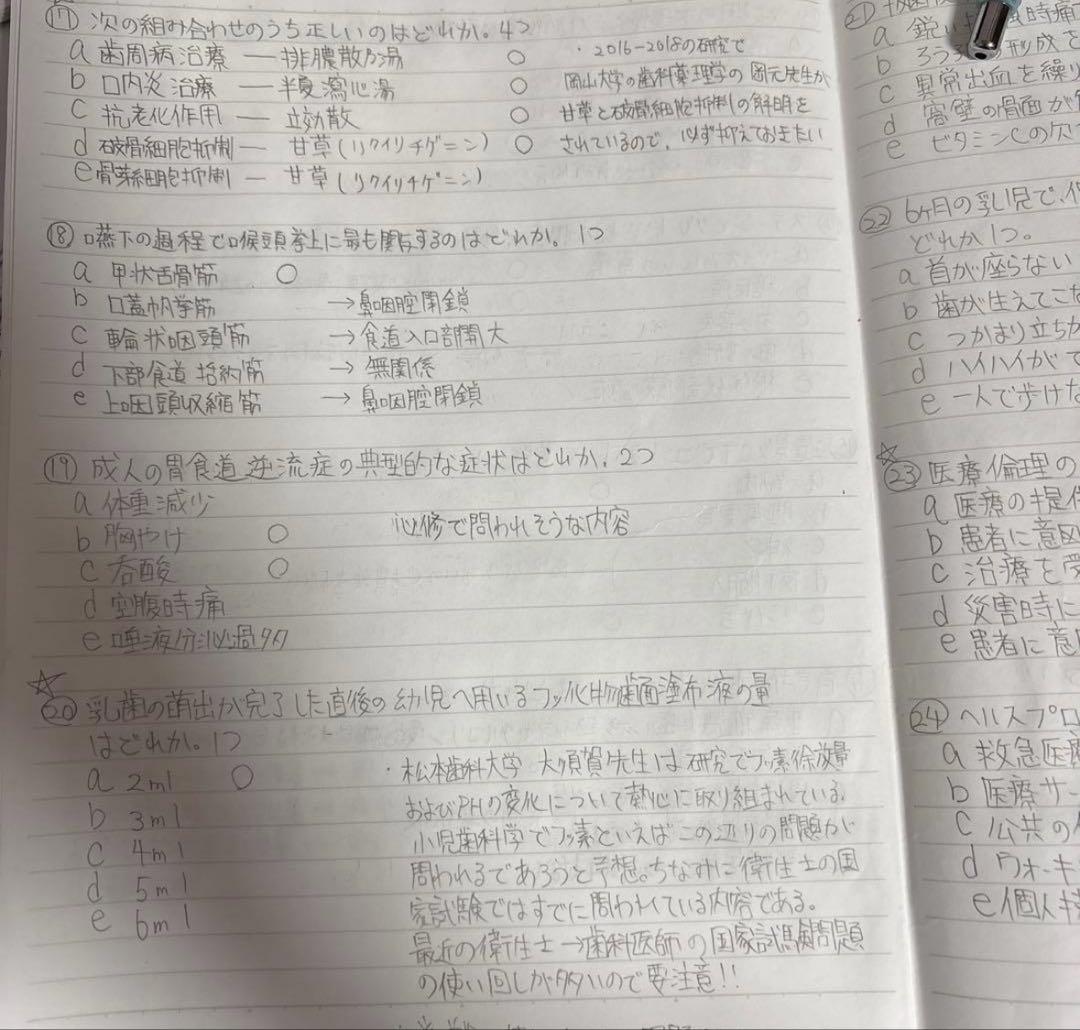 ⑰ 次の組み合わせのうち正しいのはどれか。4つ
a 歯周病治療 ― 排膿散及湯 ○
b 口内炎治療 ― 半夏瀉心湯 ○
c 抗老化作用 ― 立効散 ○
d 破骨細胞抑制 ― 甘草(リクイリチゲニン) ○
e 骨芽細胞抑制 ― 甘草(リクイリチゲニン)
・2016-2018の研究で
岡山大学の歯科薬理学の岡元先生が
甘草と破骨細胞抑制の解明を
されているので、必ず抑えておきたい
⑱ 嚥下の過程で喉頭挙上に最も関与するのはどれか。1つ
a 甲状舌骨筋 ○
b 口蓋帆挙筋 → 鼻咽腔閉鎖
c 輪状咽頭筋 → 食道入口部開大
d 下部食道括約筋 → 無関係
e 上咽頭収縮筋 → 鼻咽腔閉鎖
⑲ 成人の胃食道逆流症の典型的な症状はどれか。2つ
a 体重減少
b 胸やけ ○
c 呑酸 ○
d 空腹時痛
e 唾液分泌過多
必修で問われそうな内容
☆
⑳ 乳歯の萌出が完了した直後の幼児へ用いるフッ化物歯面塗布液の量
はどれか。1つ
a 2ml ○
b 3ml
c 4ml
d 5ml
e 6ml
・松本歯科大学 大須賀先生は研究でフッ素徐放量
およびPHの変化について熱心に取り組まれている。
小児歯科学でフッ素といえばこの辺りの問題が
問われるであろうと予想。ちなみに衛生士の国
家試験ではすでに問われている内容である。
最近の衛生士→歯科医師の国家試験問題
の使い回しが多いので要注意!!
㉑
a 鋭い
b
形成を
c 異常出血を繰り
d 窩壁の骨面が
e ビタミンCの欠
㉒ 6ヶ月の乳児で、
どれか1つ。
a 首が座らない
b 歯が生えてこな
c つかまり立ちが
d ハイハイがで
e 一人で歩けな
☆
㉓ 医療倫理の
a 医療の提供
b 患者に意図
c 治療を受
d 災害時に
e 患者に意
㉔ ヘルスプロ
a 救急医療
b 医療サー
c 公共の
d ウォーキ
e 個人